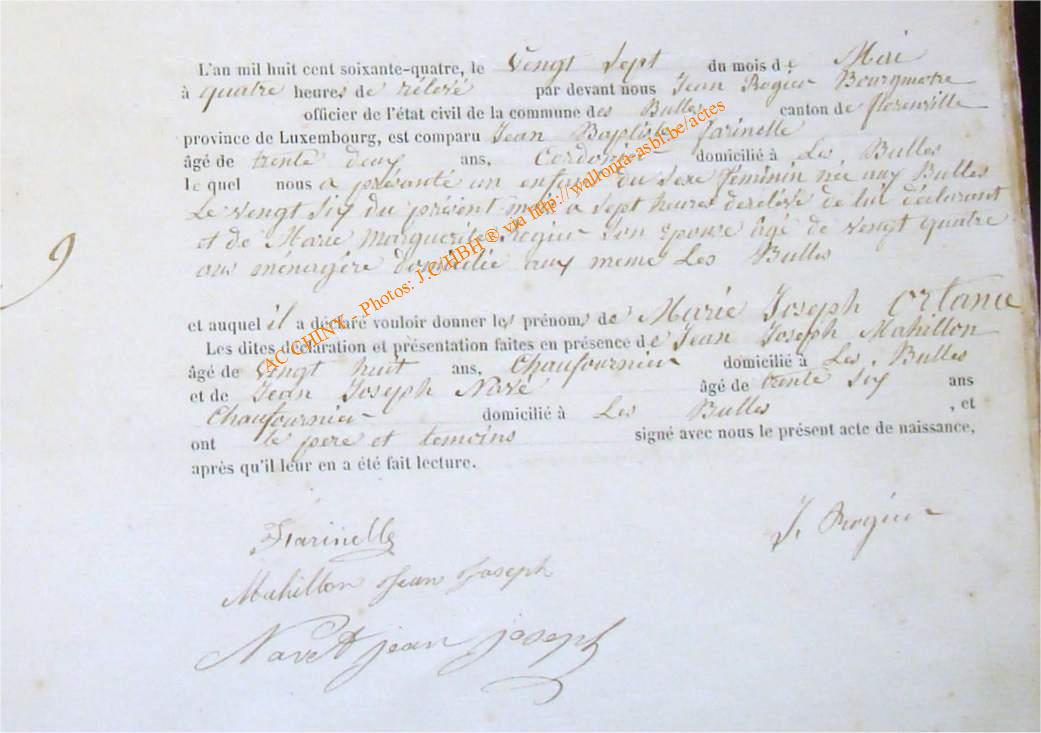 L'an mil huit cent soixante-quatre, le Vingt Sept du mois de Mai
à quatre heures de rélevé par devant nous Jean Rogier Bourgmestre
officier de l'état civil de la commune des Bulles canton de florenville
province de Luxembourg, est comparu Jean Baptiste farinelle
âgé de trente deux ans, Cordonier domicilié à Les Bulles
le quel nous a présenté un enfant du Sexe féminin née aux Bulles
Le vingt Six du présent mois a Sept heures derelévé de lui déclarant
et de Marie Marguerite Rogier Son Epouse âgé de vingt quatre
ans ménagère domicilié aux meme Les Bulles
9
et auquel il a déclaré vouloir donner les prénoms de Marie Joseph
Les dites déclaration et présentation faites en présence de Jean Joseph Mahillon
âgé de Vingt huit ans, Chaufournier domicilié à Les Bulles
et de Jean Joseph Navé âgé de trente Six ans
Chaufournier domicilié à Les Bulles , et
ont le pere et temoins signé avec nous le présent acte de naissance,
après qu'il leur en a été fait lecture.
Farinelle
J. Rogier
Mahillon Jean Joseph
Navet jean joseph
AC CHINY - Photos: J.C HBH ® via http://wallonia-asbl.be/actes